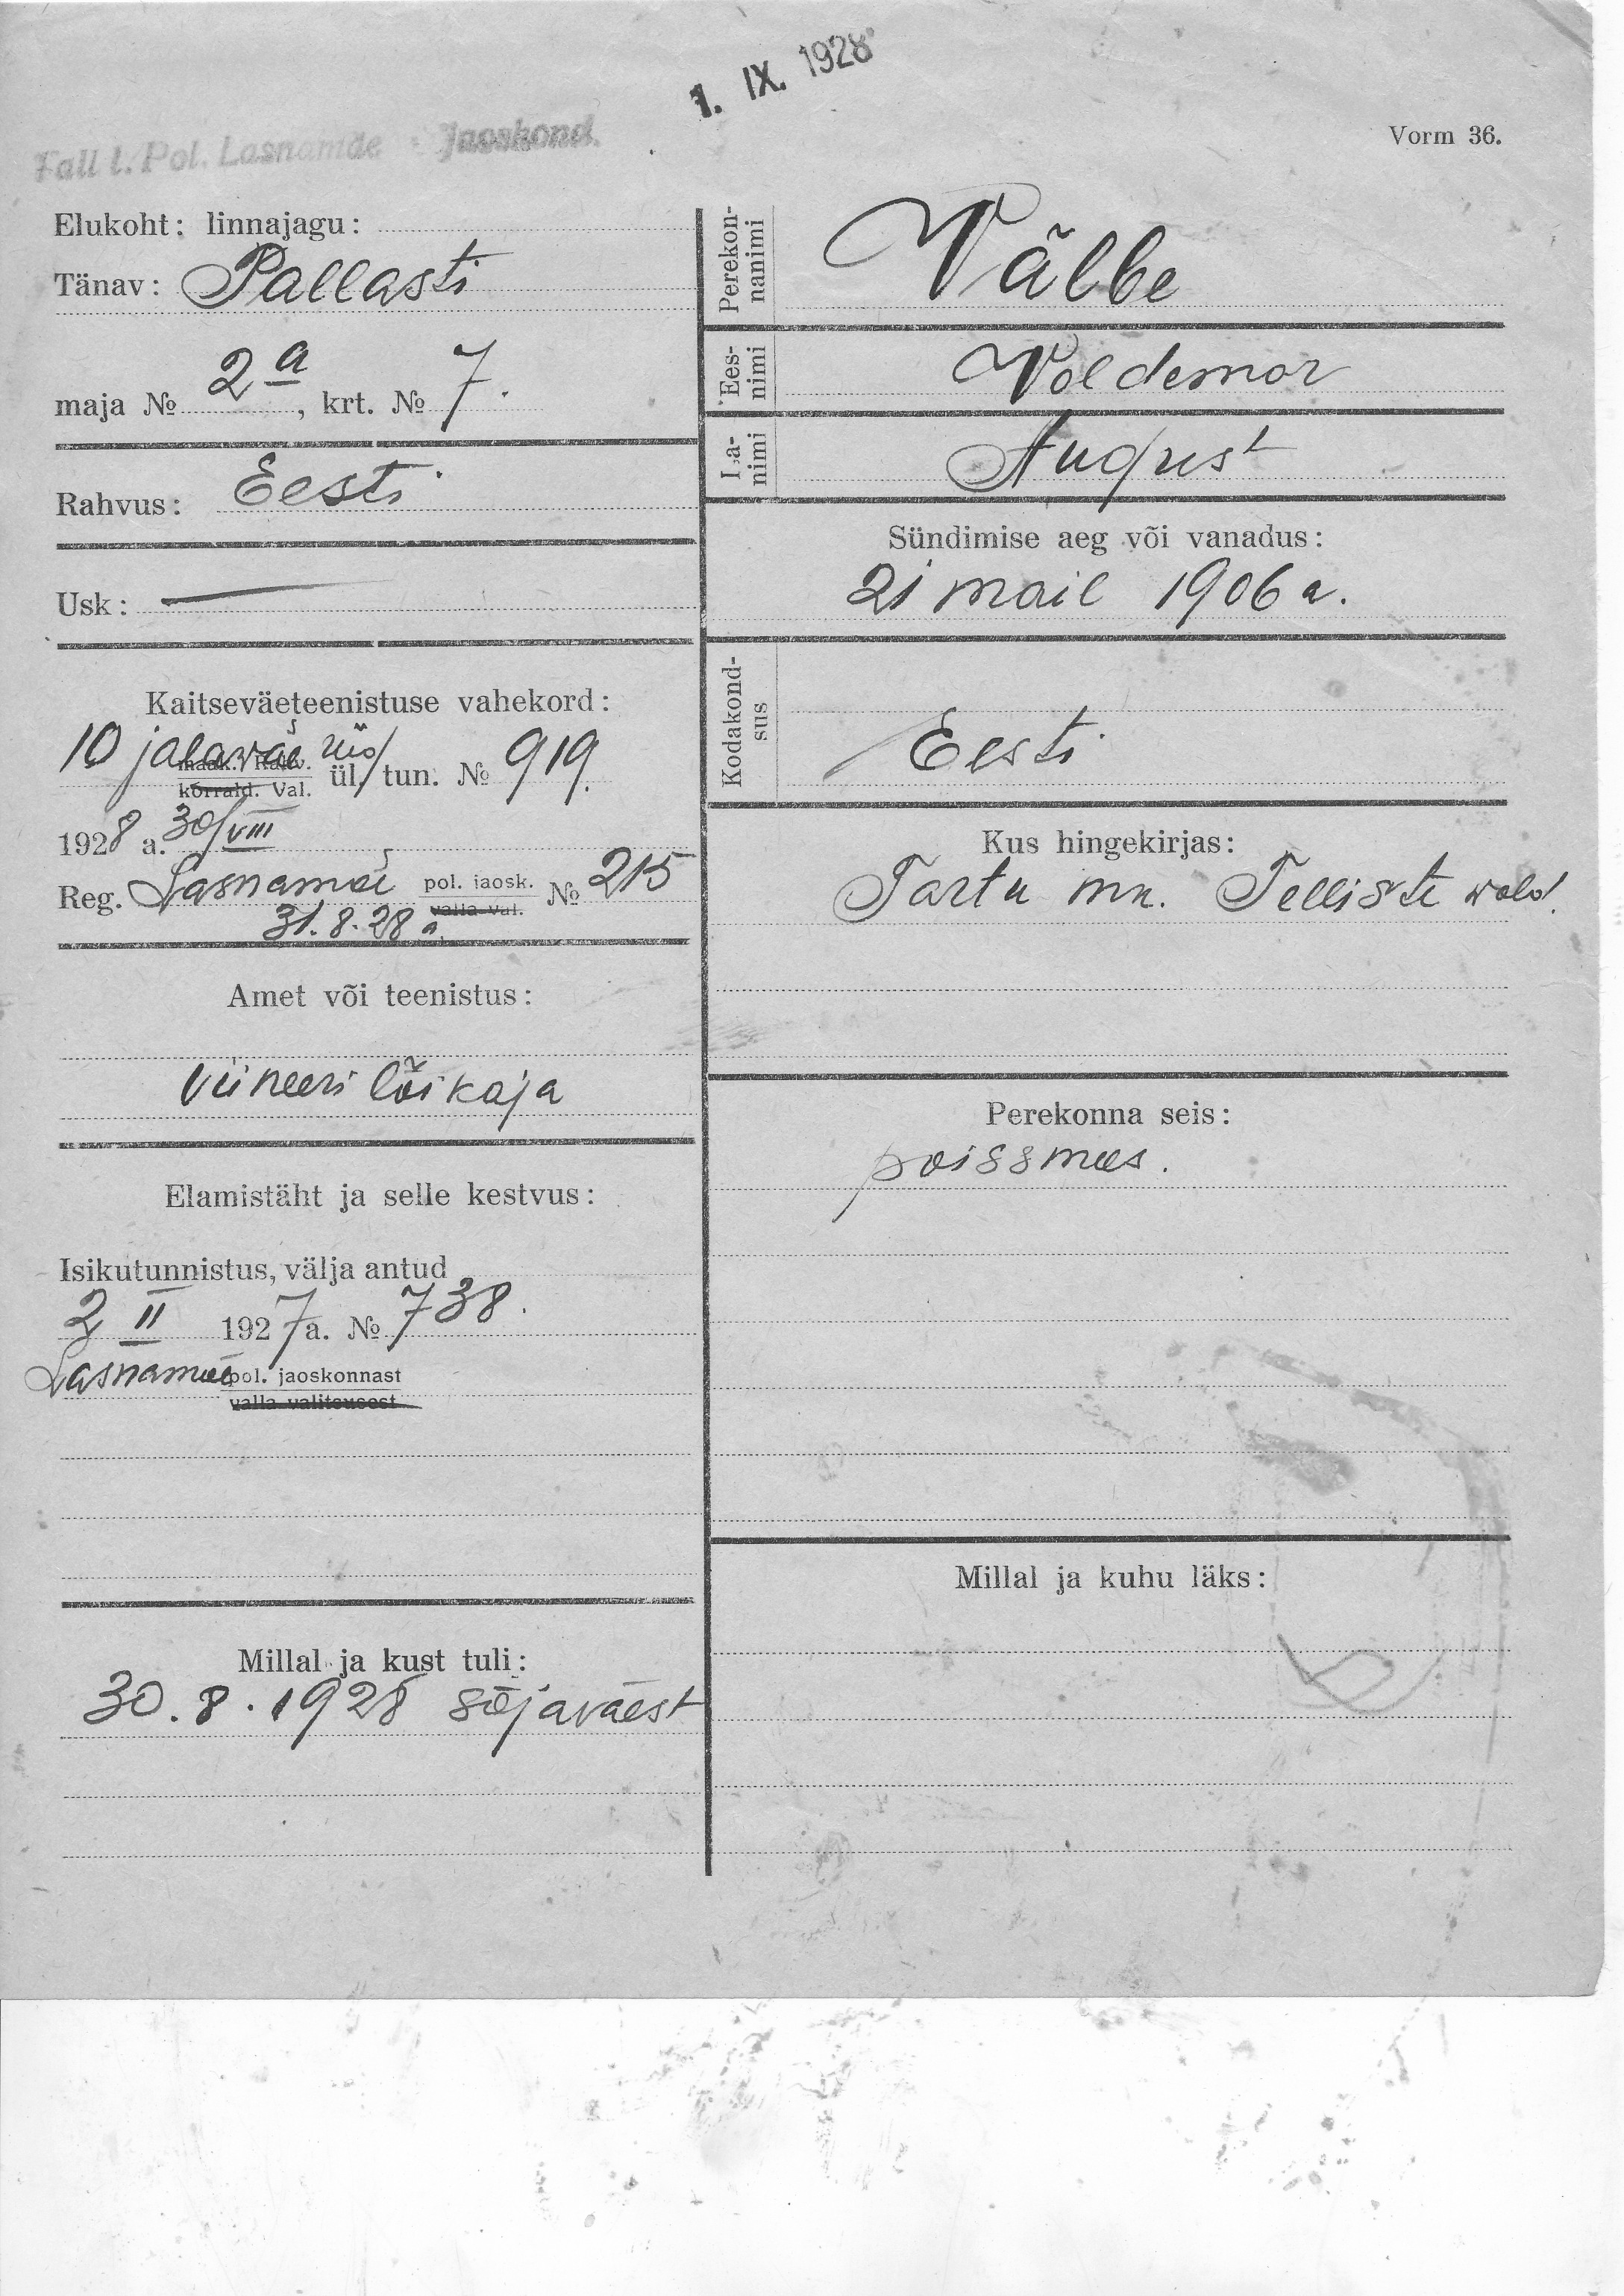 1. IX. 1928
Tall l. Pol. Lasnamäe Jaoskond.
Vorm 36.
Elukoht: linnajagu:
Tänav: Pallasti
maja № 2a, krt. № 7.
Rahvus: Eesti
Usk: —
Kaitseväeteenistuse vahekord:
10 jalaväe
Rahv.
korrald. Val. ül/tun. № 919.
1928 a. 30/VIII
Reg. Lasnamäe pol. jaosk. № 215
valla val.
31.8.28 a.
Amet või teenistus:
viineeri lõikaja
Elamistäht ja selle kestvus:
Isikutunnistus, välja antud
2 II 1927 a. № 738.
Lasnamäe pol. jaoskonnast
valla valitsusest
Millal ja kust tuli:
30.8.1928 sõjaväest
Perekon-
nanimi
Välbe
Ees-
nimi
Voldemar
Isa-
nimi
August
Sündimise aeg või vanadus:
21 mail 1906 a.
Kodakond-
sus
Eesti
Kus hingekirjas:
Tartu mk. Telliste wald.
Perekonna seis:
poissmees.
Millal ja kuhu läks: